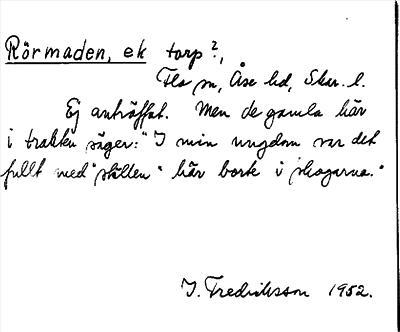 Rörmaden, ek torp?,
Flo sn, Åse hd, Skar. l.
Ej anträffat. Men de gamla här
i trakten säger: "I min ungdom var det
fullt med "ställen" här borta i skogarna."
I. Fredriksson 1952.